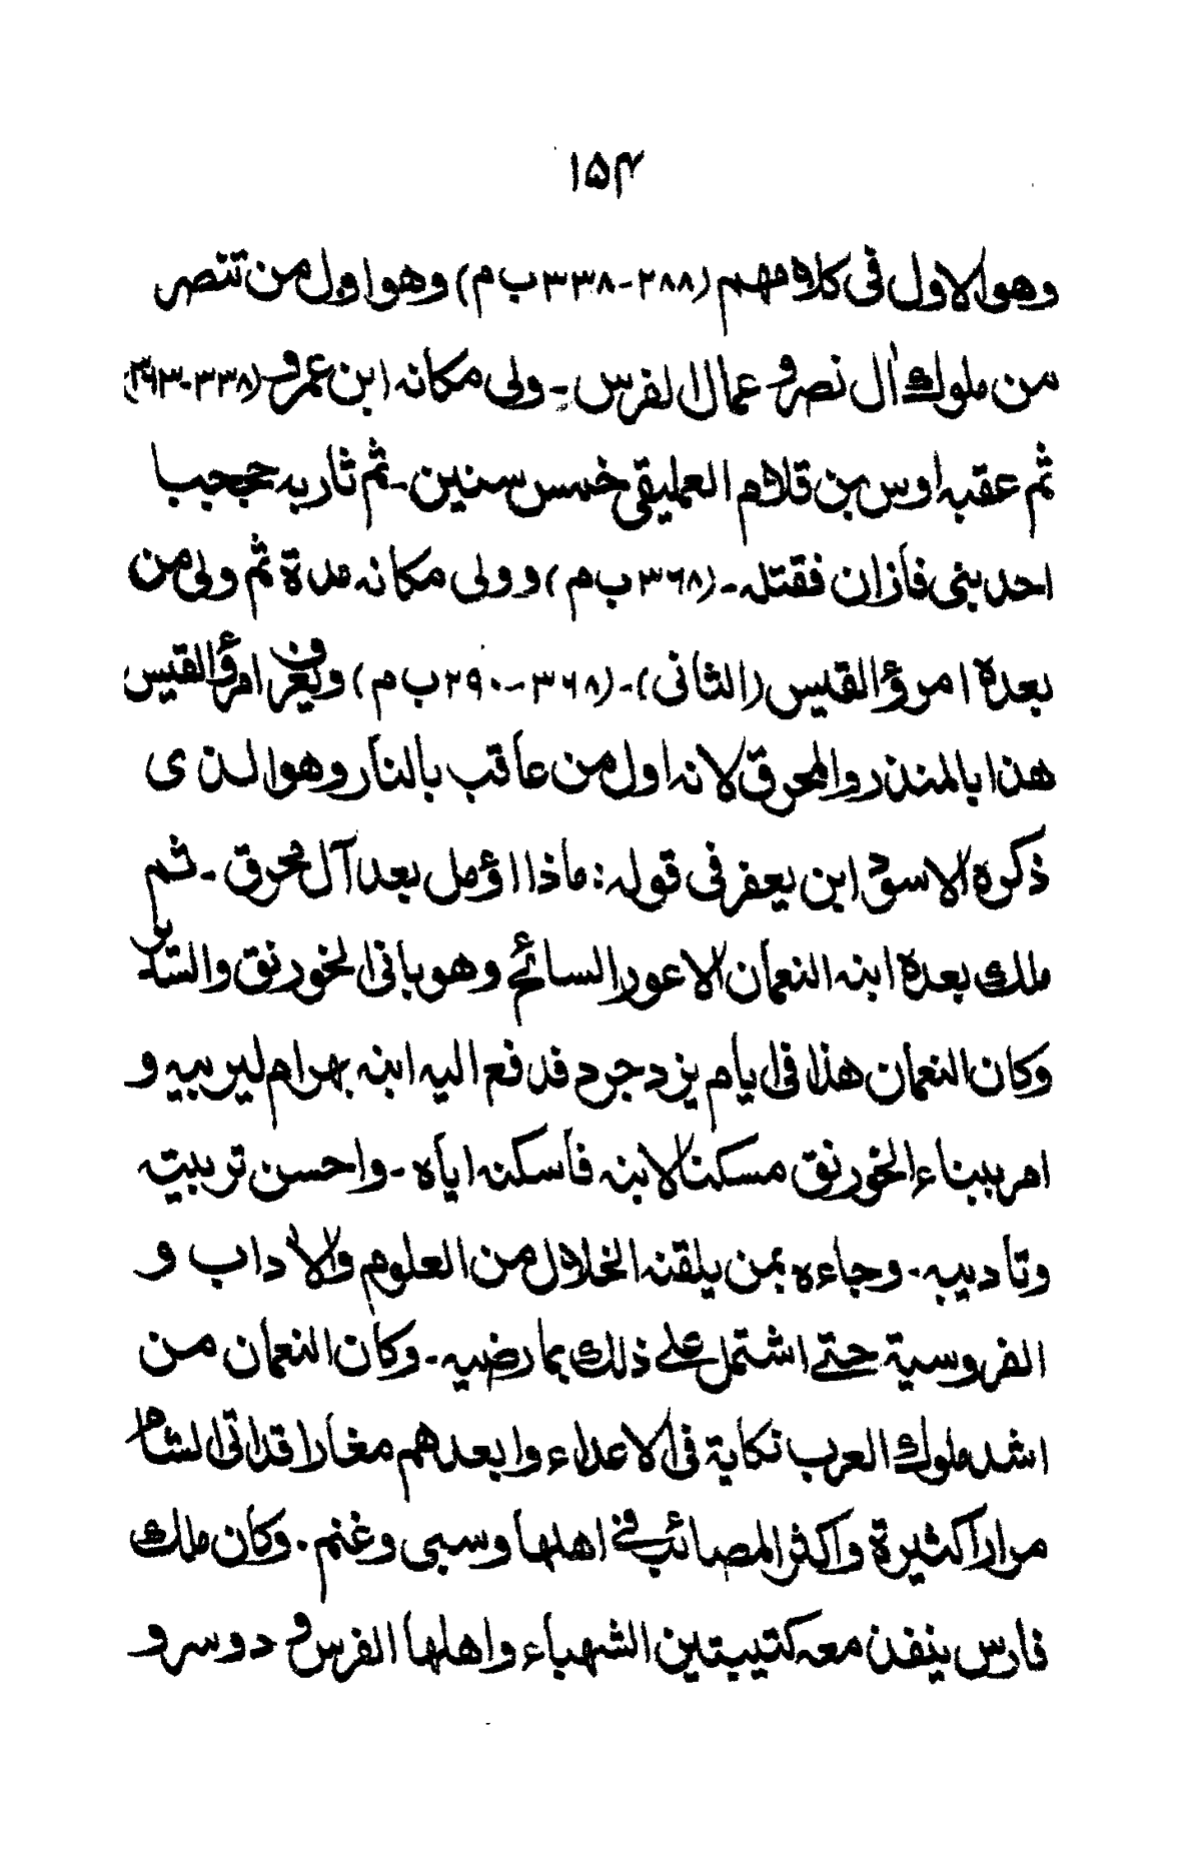 ١٥٤
وهوالاول فى كلامهم (٢٨٨-٣٣٨ ب م) وهواول من تنصر
من ملوك اٰل نصر و عمال الفرس - وولى مكانه ابن عمرو (٣٣٨-٣٦٣)
ثم عقبه اوس بن قلام العمليقى خمس سنين - ثم ثار به حججبا
احد بنى فازان فقتله - (٣٦٨ ب م) و ولى مكانه مدة ثم ولى من
بعده امرؤ القيس (الثانى) - (٣٦٨-٢٩٠ ب م) ويعرف امرؤ القيس
هذا بالمنذر والمحرق لانه اول من عاقب بالنار وهوالذى
ذكره الاسود ابن يعفر فى قوله: ماذا اؤمل بعد آل محرق - ثم
ملك بعده ابنه النعمان الاعور السائح وهو بانى الخورنق والسدير
وكان النعمان هذا فى ايام يزدجرد فدفع اليه ابنه بهرام ليربيه و
امر ببناء الخورنق مسكنا لابنه فأسكنه اياه - واحسن تربيته
وتأديبه - وجاءه بمن يلقنه الخلال من العلوم والاٰداب و
الفروسية حتى اشتمل على ذلك بما رضيه - وكان النعمان من
اشد ملوك العرب نكاية فى الاعداء وابعدهم مغارا قد اتى الشام
مرارا كثيرة واكثر المصائب فى اهلها وسبى وغنم . وكان ملك
فارس ينفذ معه كتيبتين الشهباء واهلها الفرس و دوسر و